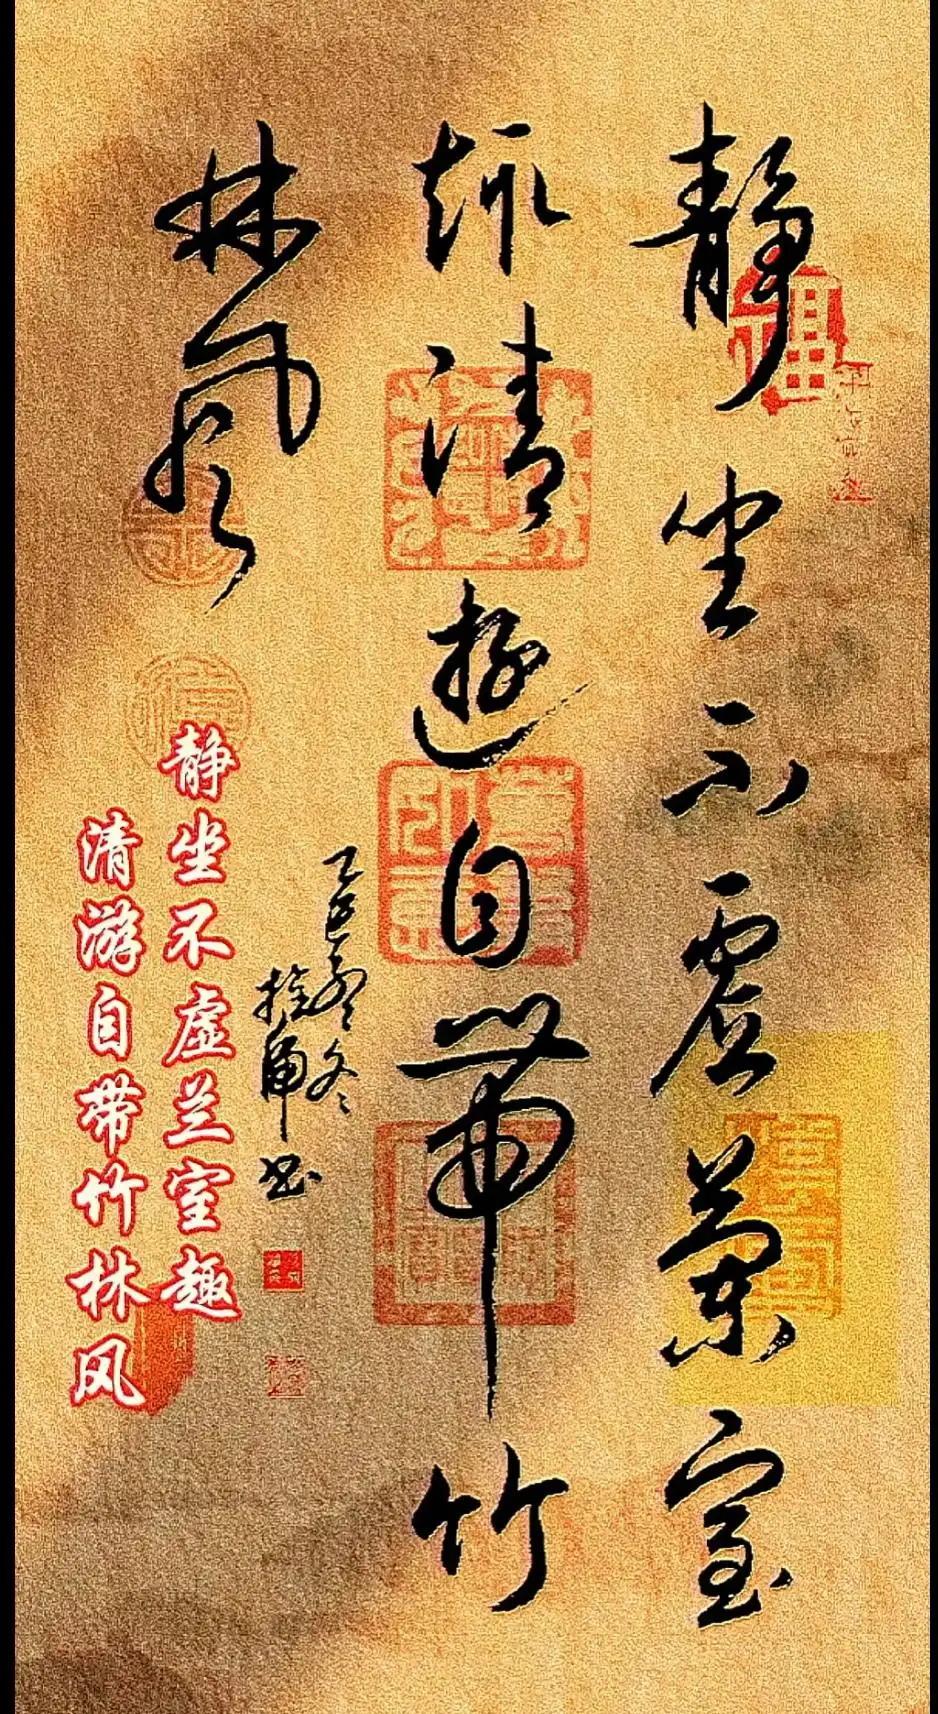 静坐不虚兰室
趣清遊自带竹
林风
乙巳
冬
书
静坐不虚兰室趣
清游自带竹林风
福